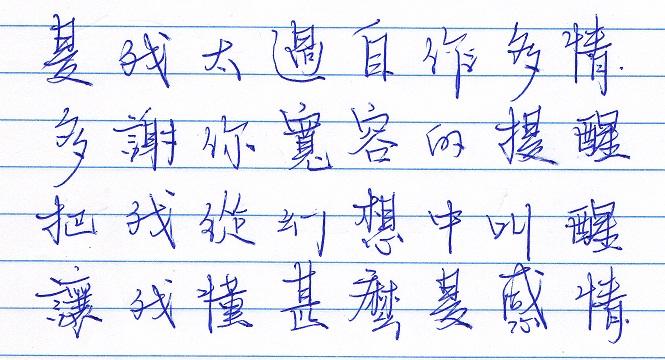 是我太過自作多情.
多謝你寬容的提醒
把我從幻想中叫醒
讓我懂甚麼是感情.